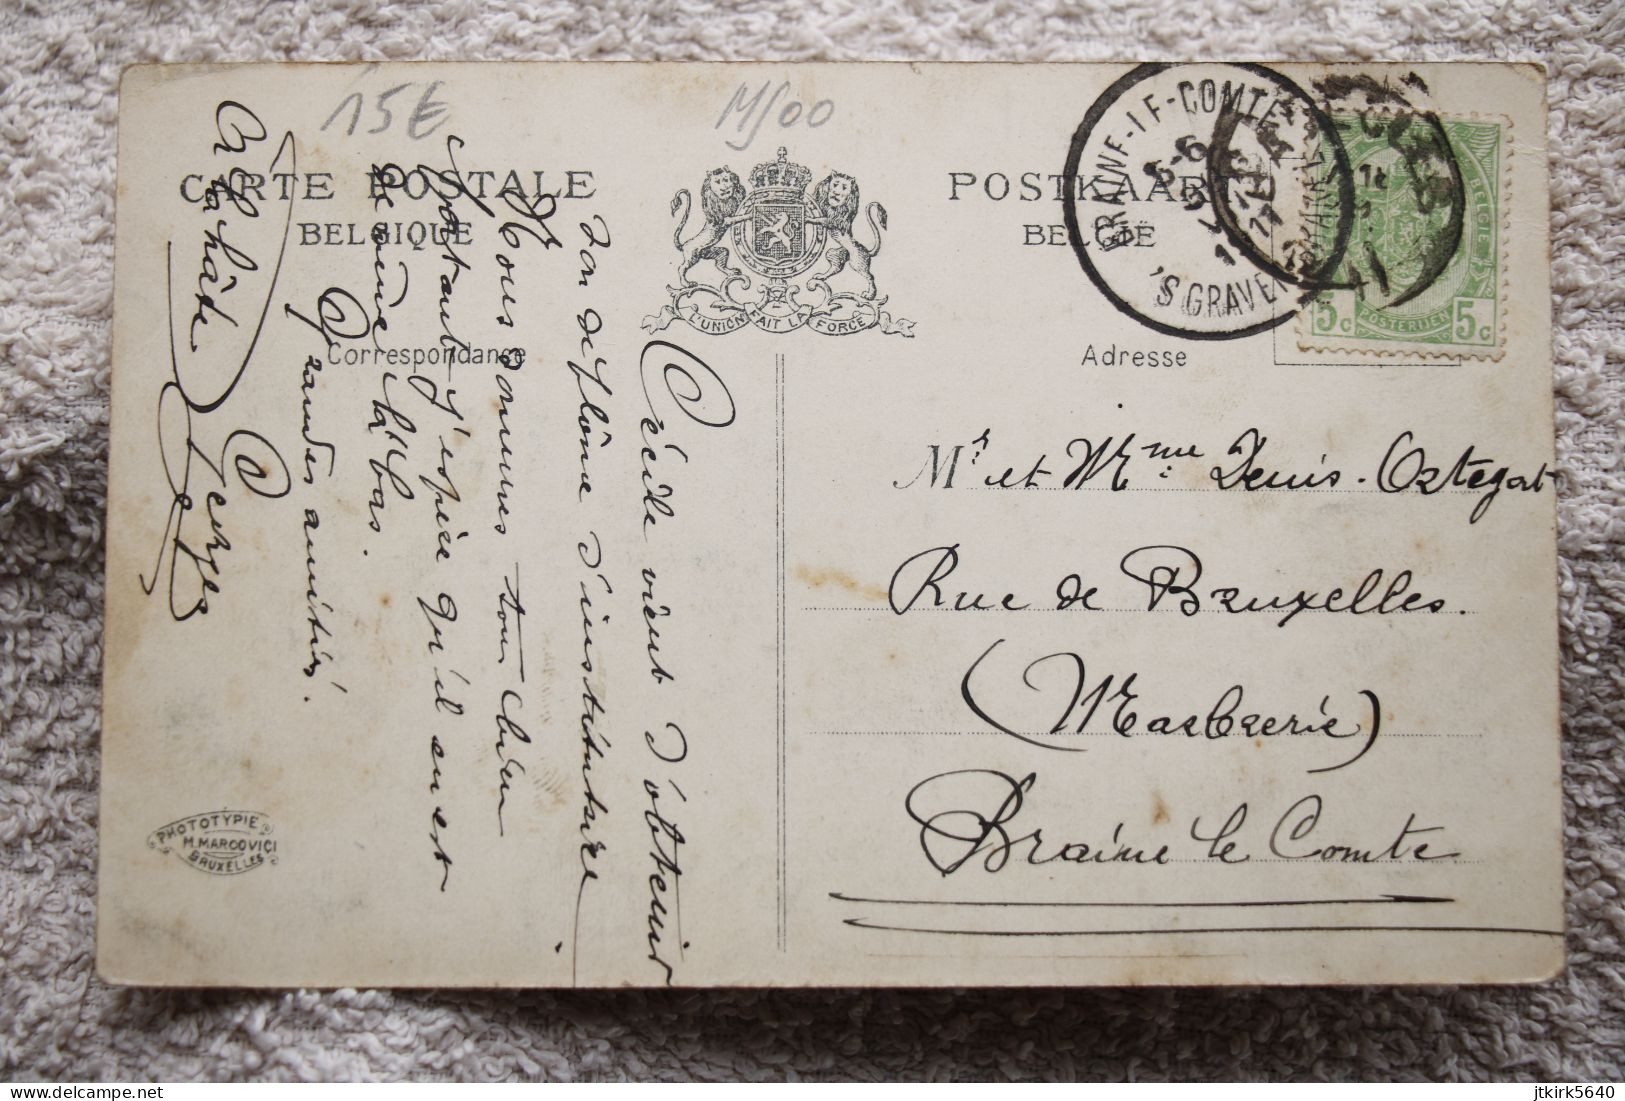 15€
M/500
CARTE POSTALE
BELGIQUE
POSTKAART
BELGIË
L'UNION FAIT LA FORCE
Correspondance
Adresse
BRAINE-LE-COMTE
'S GRAVEN
BELGIE
5c POSTERIJEN 5c
Cécile vient d'obtenir
son diplôme d'institutrice.
Nous sommes tous bien
portants j'espère qu'il en est
de même là bas.
Grandes amitiés.
Georges
Mr et Mme Denis-Ortegat
Rue de Bruxelles.
(Marbrerie)
Braine le Comte
PHOTOTYPIE
M. MARCOVICI
BRUXELLES
delcampe.net
jtkirk5640